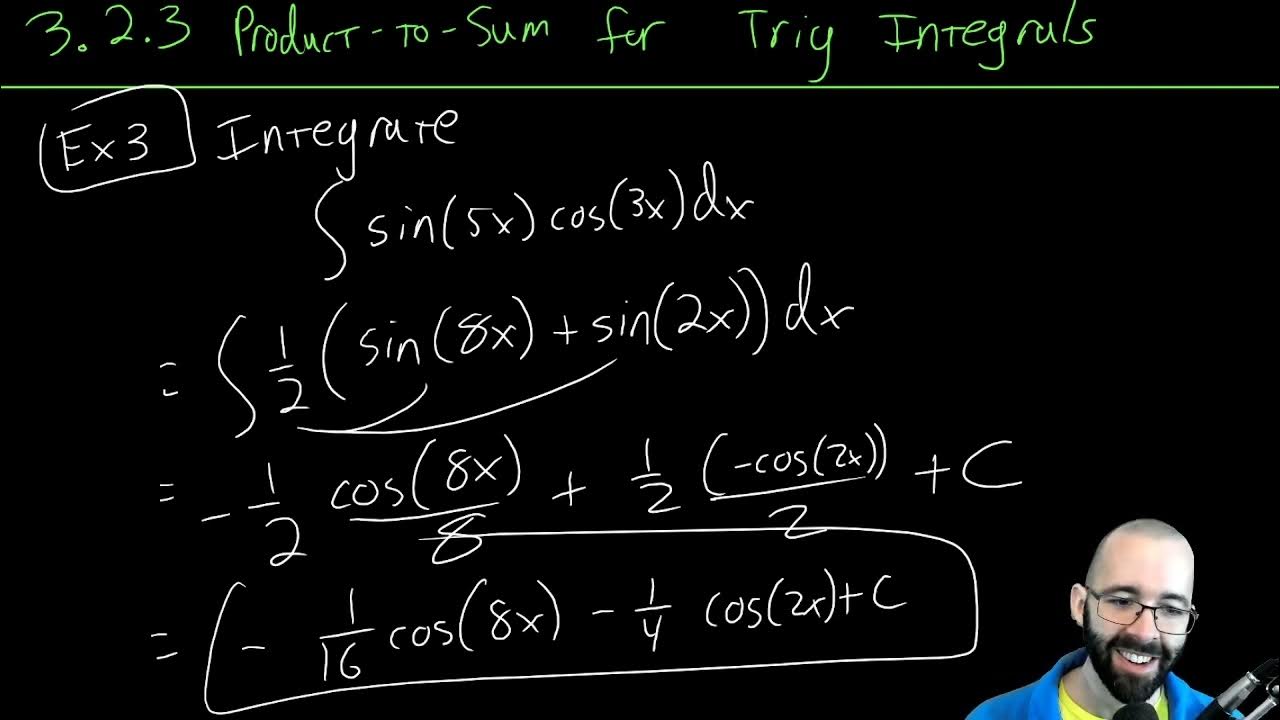 3.2.3 Product-to-Sum for Trig Integrals
Ex 3 Integrate
∫ sin(5x) cos(3x) dx
= ∫ 1/2 (sin(8x) + sin(2x)) dx
= - 1/2 cos(8x)/8 + 1/2 (-cos(2x))/2 + C
= - 1/16 cos(8x) - 1/4 cos(2x) + C